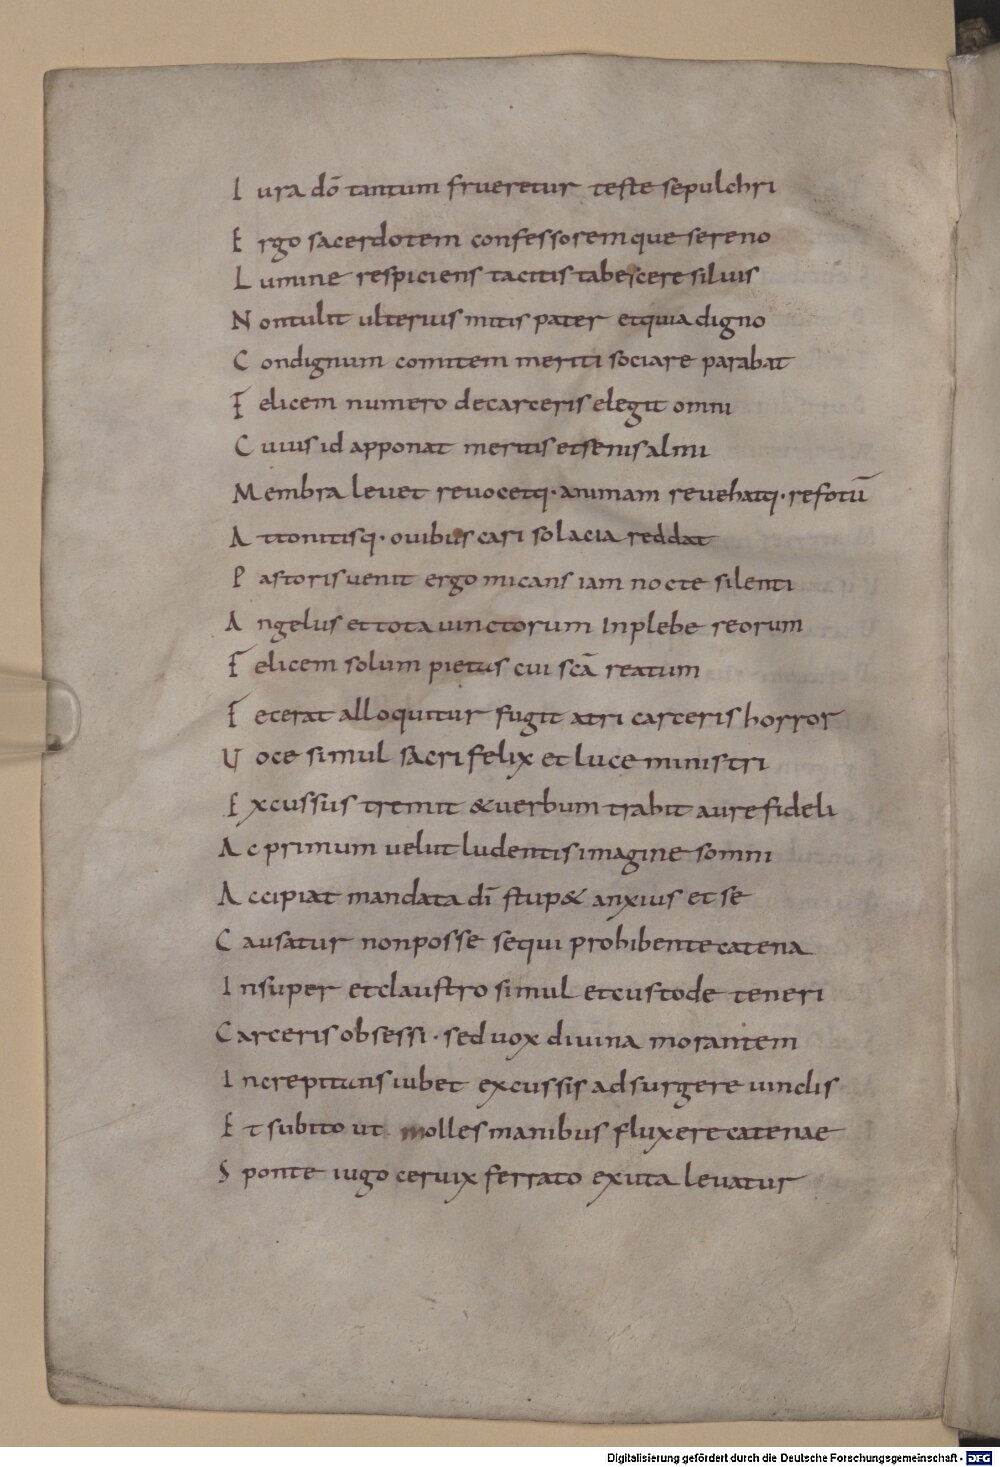 I ura dō tantum frueretur teste sepulchri
E rgo sacerdotem confessoremque sereno
L umine respiciens tacitis tabescere silvis
N ontulit ulterius mitis pater etquia digno
C ondignum comitem meriti sociare parabat
F elicem numero decarceris elegit omni
C uius id apponat meritis etsenis almi
M embra levet revocetq· animam revehatq· refotū
A ttonitisq· ovibus cari solacia reddat
P astoris venit ergo micans iam nocte silenti
A ngelus et tota vinctorum Inplebe reorum
F elicem solum pietas cui scā reatum
F ecerat alloquitur fugit atri carceris horror
V oce simul sacri felix et luce ministri
E xcussus tremit &verbum trahit aure fideli
A c primum velut ludentis imagine somni
A ccipiat mandata dī stup& anxius et se
C ausatur nonposse sequi prohibente catena
I nsuper etclaustro simul etcustode teneri
C arceris obsessi · sed vox divina morantem
I ncrepitans iubet excussis adsurgere vinclis
E t subito ut molles manibus fluxere catenae
S ponte iugo cervix ferrato exuta levatur
Digitalisierung gefördert durch die Deutsche Forschungsgemeinschaft - DFG